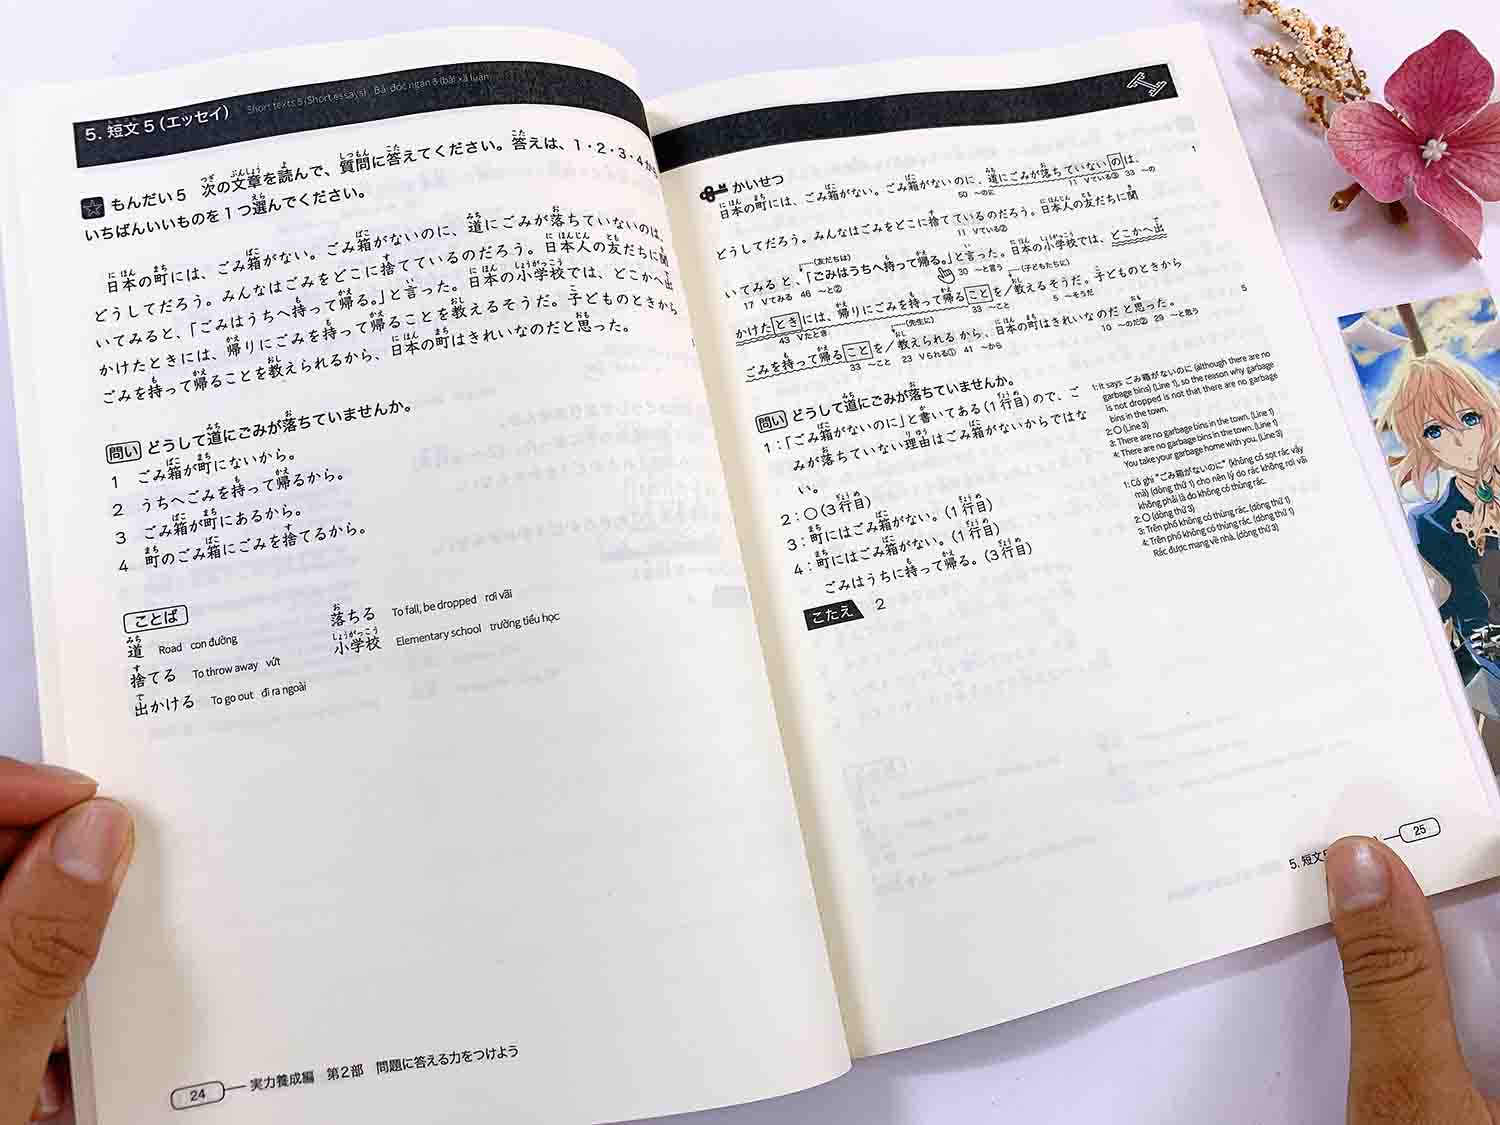 5. 短文5(エッセイ) Short texts 5 (Short essays)
もんだい5 次の文章を読んで、質問に答えてください。答えは、1・2・3・4から
いちばんいいものを1つ選んでください。
日本の町には、ごみ箱がない。ごみ箱がないのに、道にごみが落ちていないのは、
どうしてだろう。みんなはごみをどこに捨てているのだろう。日本人の友だちに聞
いてみると、「ごみはうちへ持って帰る。」と言った。日本の小学校では、どこかへ出
かけたときには、帰りにごみを持って帰ることを教えるそうだ。子どものときから
ごみを持って帰ることを教えられるから、日本の町はきれいなのだと思った。
問い どうして道にごみが落ちていませんか。
1 ごみ箱が町にないから。
2 うちへごみを持って帰るから。
3 ごみ箱が町にあるから。
4 町のごみ箱にごみを捨てるから。
ことば
道 Road con đường
捨てる To throw away vứt
出かける To go out đi ra ngoài
落ちる To fall, be dropped rơi vãi
小学校 Elementary school trường tiểu học
24 実力養成編 第2部 問題に答える力をつけよう
かいせつ
日本の町には、ごみ箱がない。ごみ箱がないのに、道にごみが落ちていないのは、 1
50 〜のに 11 Vている③ 33 〜の
どうしてだろう。みんなはごみをどこに捨てているのだろう。日本人の友だちに聞
11 Vている②
(友だちは)
いてみると、「ごみはうちへ持って帰る。」と言った。日本の小学校では、どこかへ出
17 Vてみる 46 〜と② 30 〜と言う (子どもたちに)
かけたときには、帰りにごみを持って帰ることを/教えるそうだ。子どものときから
43 Vたとき 33 〜こと 5 〜そうだ
(先生に)
ごみを持って帰ることを/教えられるから、日本の町はきれいなのだと思った。 5
33 〜こと 23 Vられる① 41 〜から 10 〜のだ② 29 〜と思う
問い どうして道にごみが落ちていませんか。
1:「ごみ箱がないのに」と書いてある(1行目)ので、ご
みが落ちていない理由はごみ箱がないからではな
い。
2:○(3行目)
3:町にはごみ箱がない。(1行目)
4:町にはごみ箱がない。(1行目)
ごみはうちに持って帰る。(3行目)
こたえ 2
1: It says ごみ箱がないのに (although there are no
garbage bins) (Line 1), so the reason why garbage
is not dropped is not that there are no garbage
bins in the town.
2: ○ (Line 3)
3: There are no garbage bins in the town. (Line 1)
4: There are no garbage bins in the town. (Line 1)
You take your garbage home with you. (Line 3)
1: Có ghi "ごみ箱がないのに" (không có sọt rác vậy
mà) (dòng thứ 1) cho nên lý do rác không rơi vãi
không phải là do không có thùng rác.
2: ○ (dòng thứ 3)
3: Trên phố không có thùng rác. (dòng thứ 1)
4: Trên phố không có thùng rác. (dòng thứ 1)
Rác được mang về nhà. (dòng thứ 3)
5. 短文 25